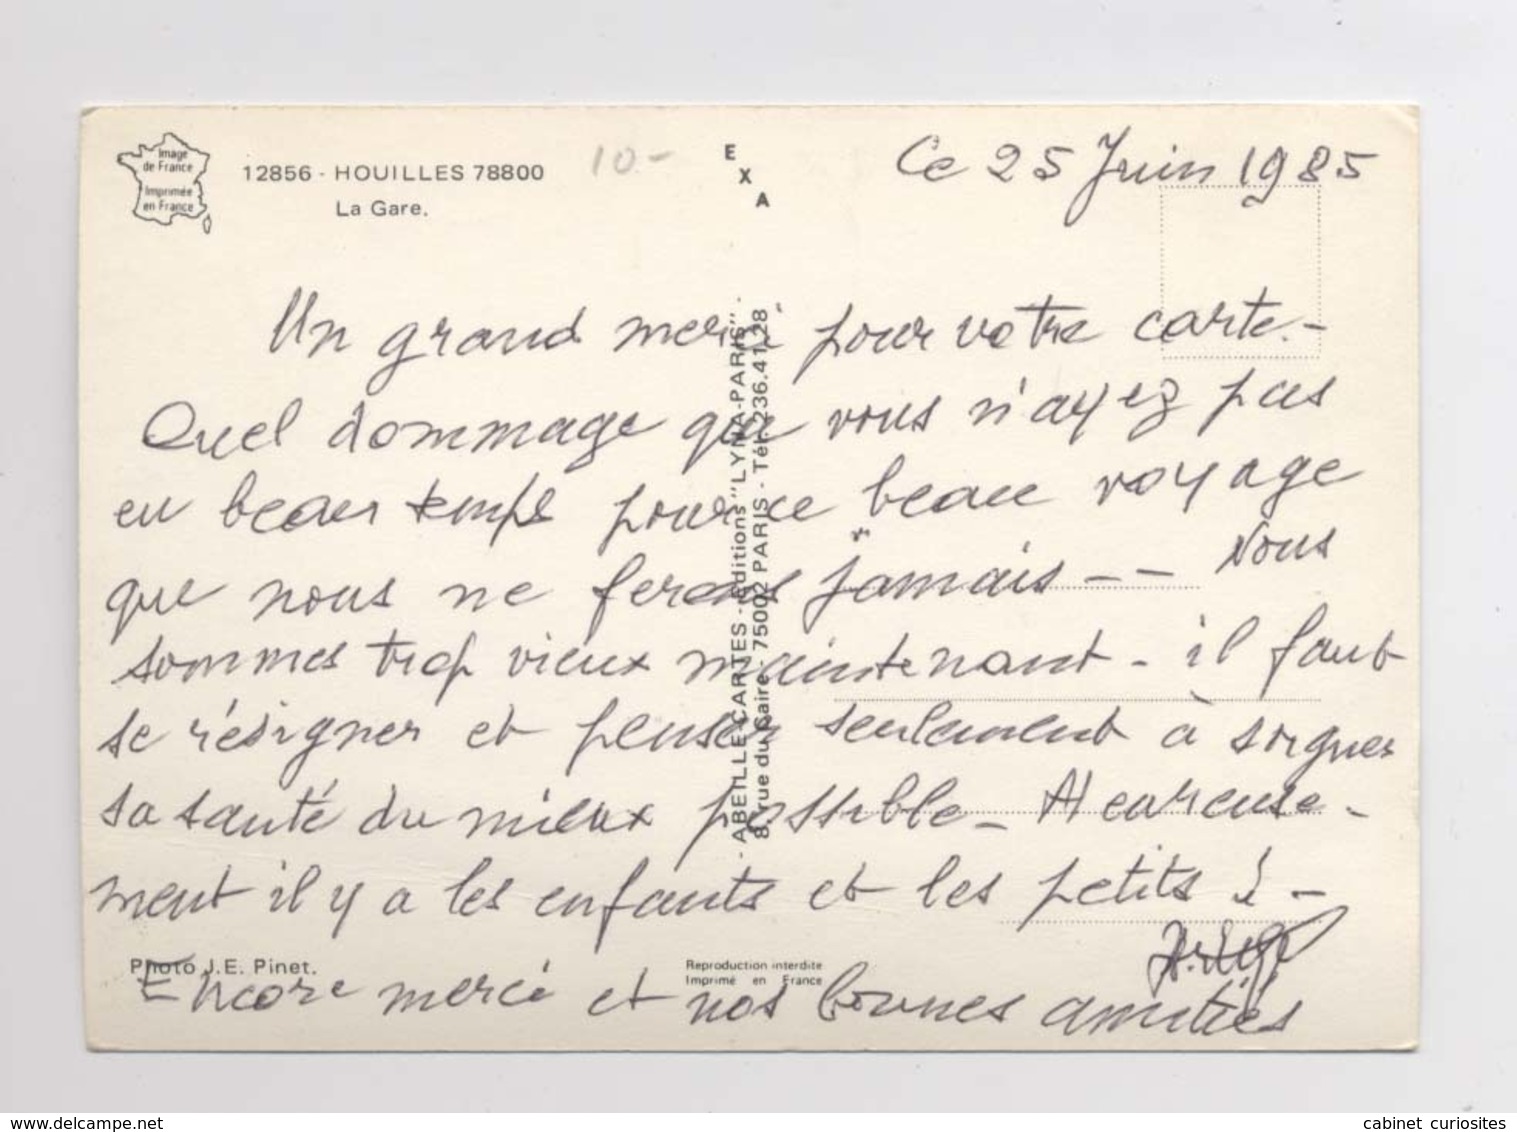 Image
de France
Imprimée
en France
12856 - HOUILLES 78800
La Gare.
10-
E
X
A
Ce 25 Juin 1985
Un grand merci pour votre carte.-
Quel dommage que vous n'ayez pas
eu beau temps pour ce beau voyage
que nous ne ferons jamais -- Nous
sommes trop vieux maintenant - il faut
se résigner et penser seulement à soigner
sa santé du mieux possible - Heureuse-
ment il y a les enfants et les petits! -
Encore merci et nos bonnes amitiés
- ABEILLE-CARTES - Editions "LYNA-PARIS" -
8, rue du Caire - 75002 PARIS - Tél. 236.41.28
Photo J.E. Pinet.
Reproduction interdite
Imprimé en France
cabinet curiosites